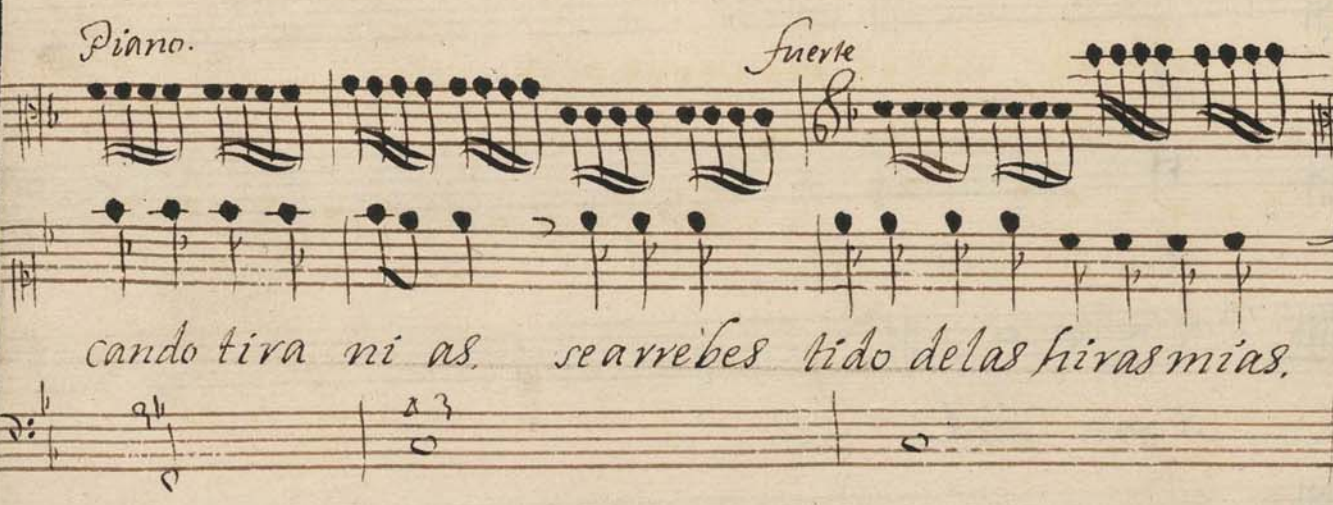 Piano. fuerte
cando tira ni as. se arrebes tido delas hiras mias.
4 3